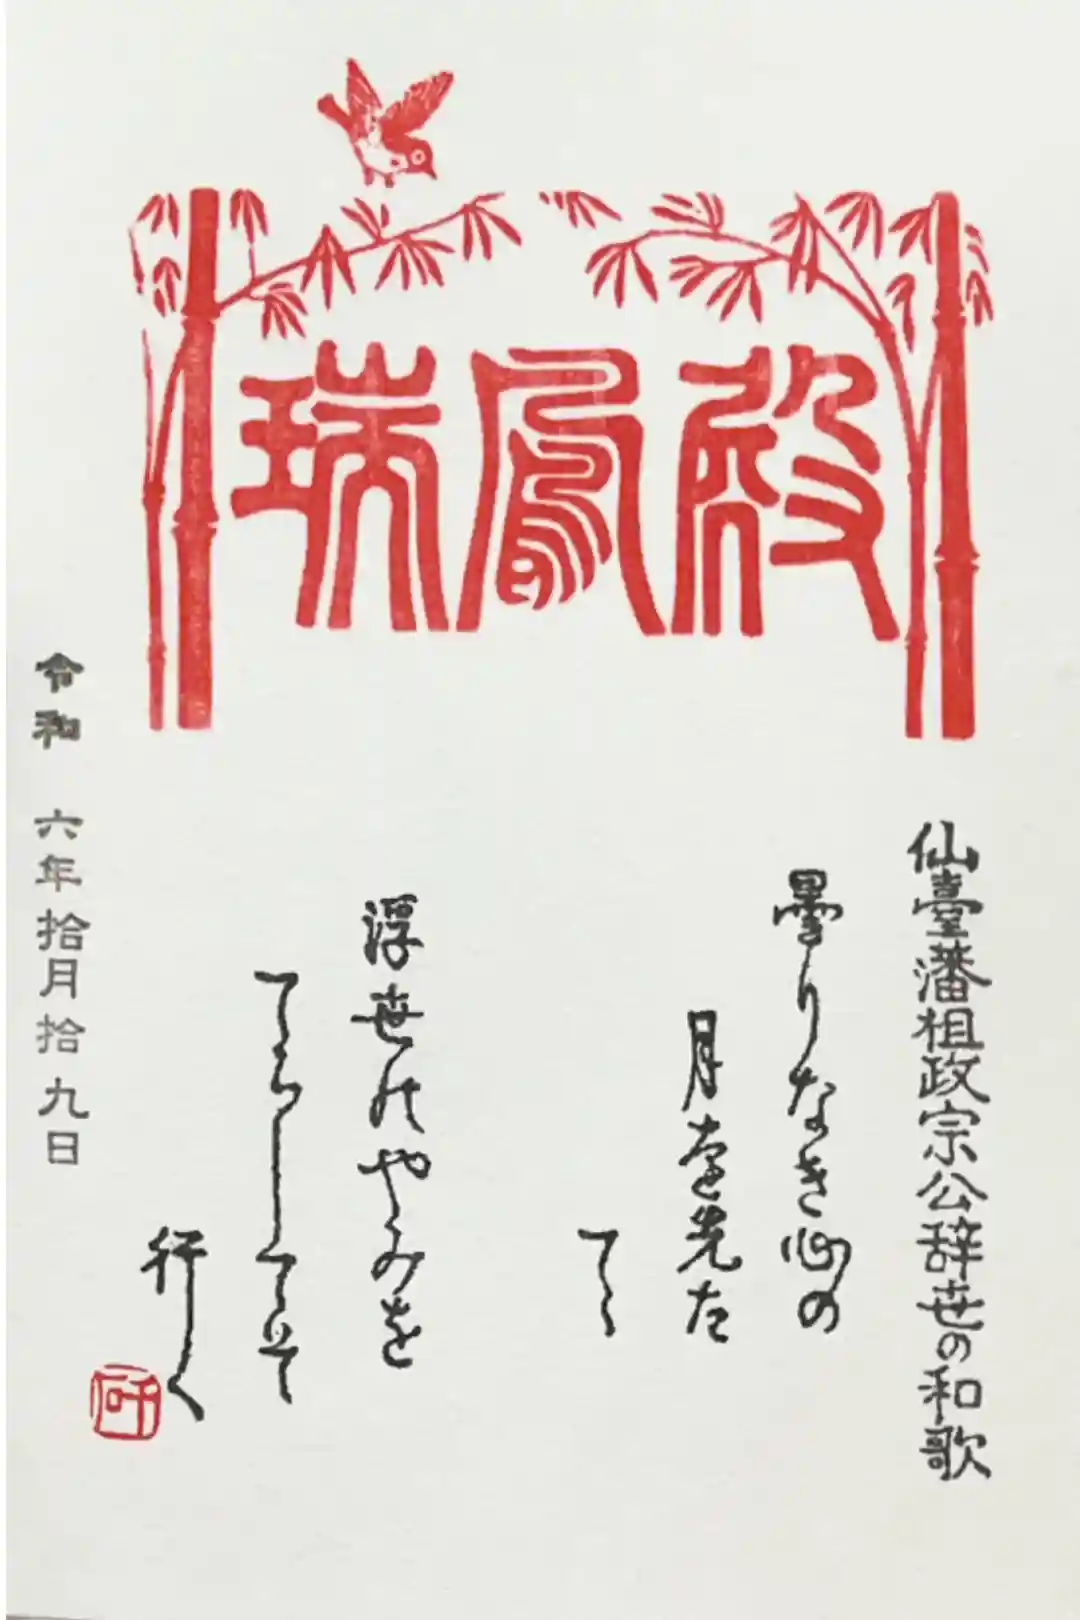 瑞鳳殿
仙臺藩祖政宗公辞世の和歌
曇りなき心の
月を先た
てゝ
浮世のやみを
てらしてそ
行く
令和 六年拾月拾九日